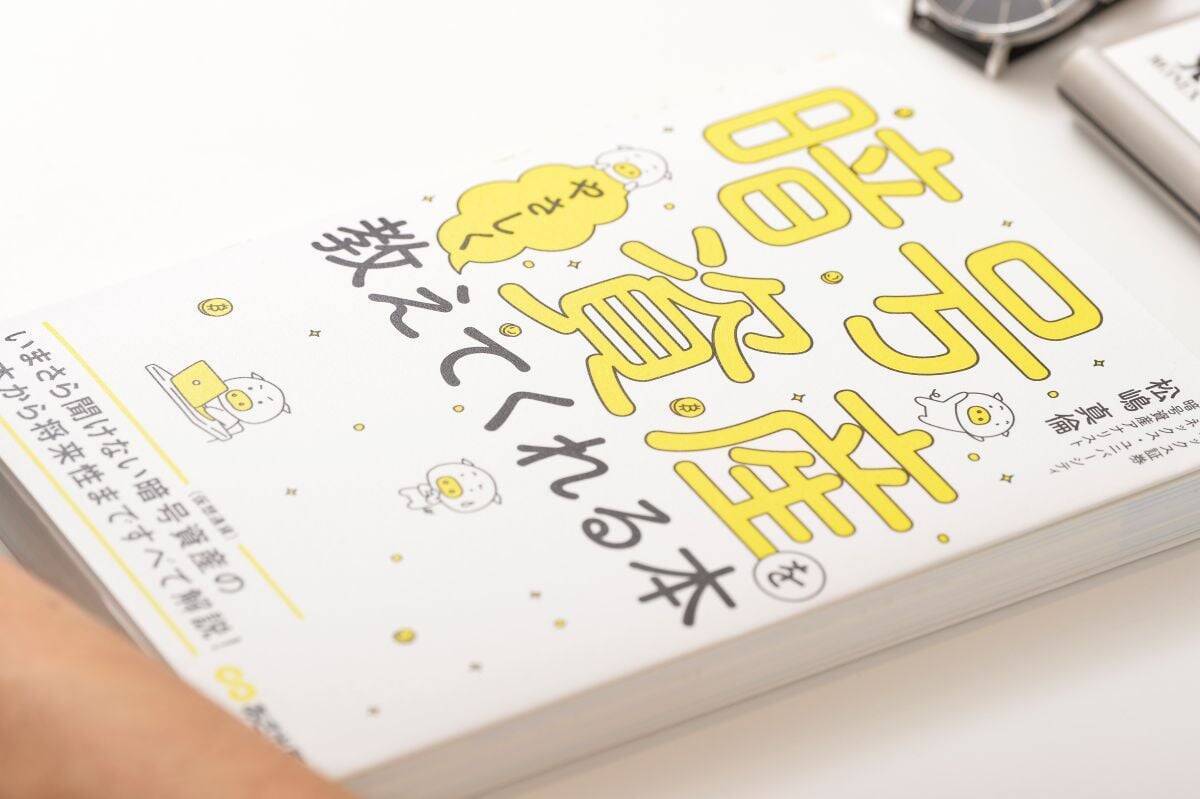 暗号資産を
やさしく
教えてくれる本
ックス証券
ネックス・ユニバーシティ
暗号資産アナリスト
松嶋真倫
(仮想通貨)
いまさら聞けない暗号資産の
から将来性まですべて解説!
B
B